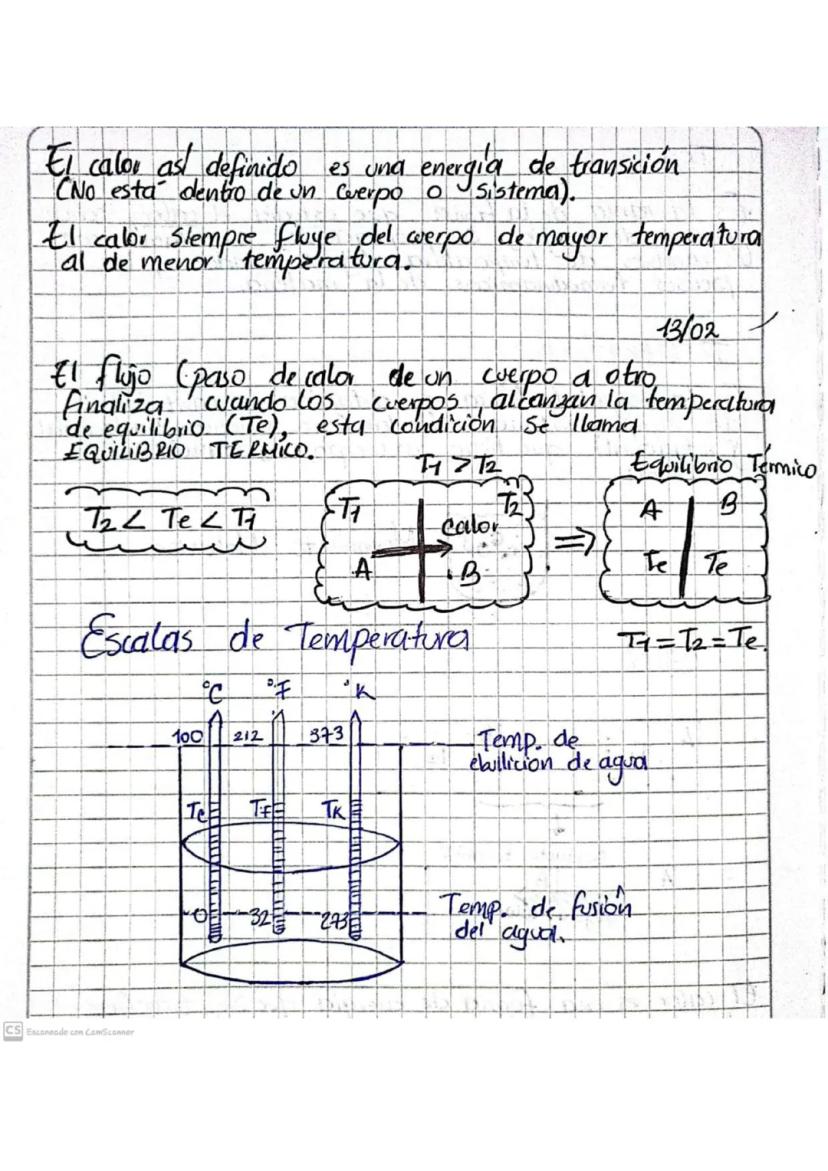 El calor así definido es una energía de transición
(No está dentro de un cuerpo o sistema).
El calor siempre fluye del cuerpo de mayor temperatura
al de menor temperatura.
13/02
El flujo (paso de calor de un cuerpo a otro
finaliza cuando los cuerpos alcanzan la temperatura
de equilibrio (Te), esta condición se llama
EQUILIBRIO TERMICO.
T1 > T2
Equilibrio Térmico
T2 < Te < T1
T1 T2
Calor
A B
⇒
A B
Te Te
T1 = T2 = Te.
Escalas de Temperatura
°C °F °K
100 212 373
Temp. de
ebullicion de agua
Tc TF TK
0 32 273
Temp. de fusión
del agua.
CS Escaneado con CamScanner